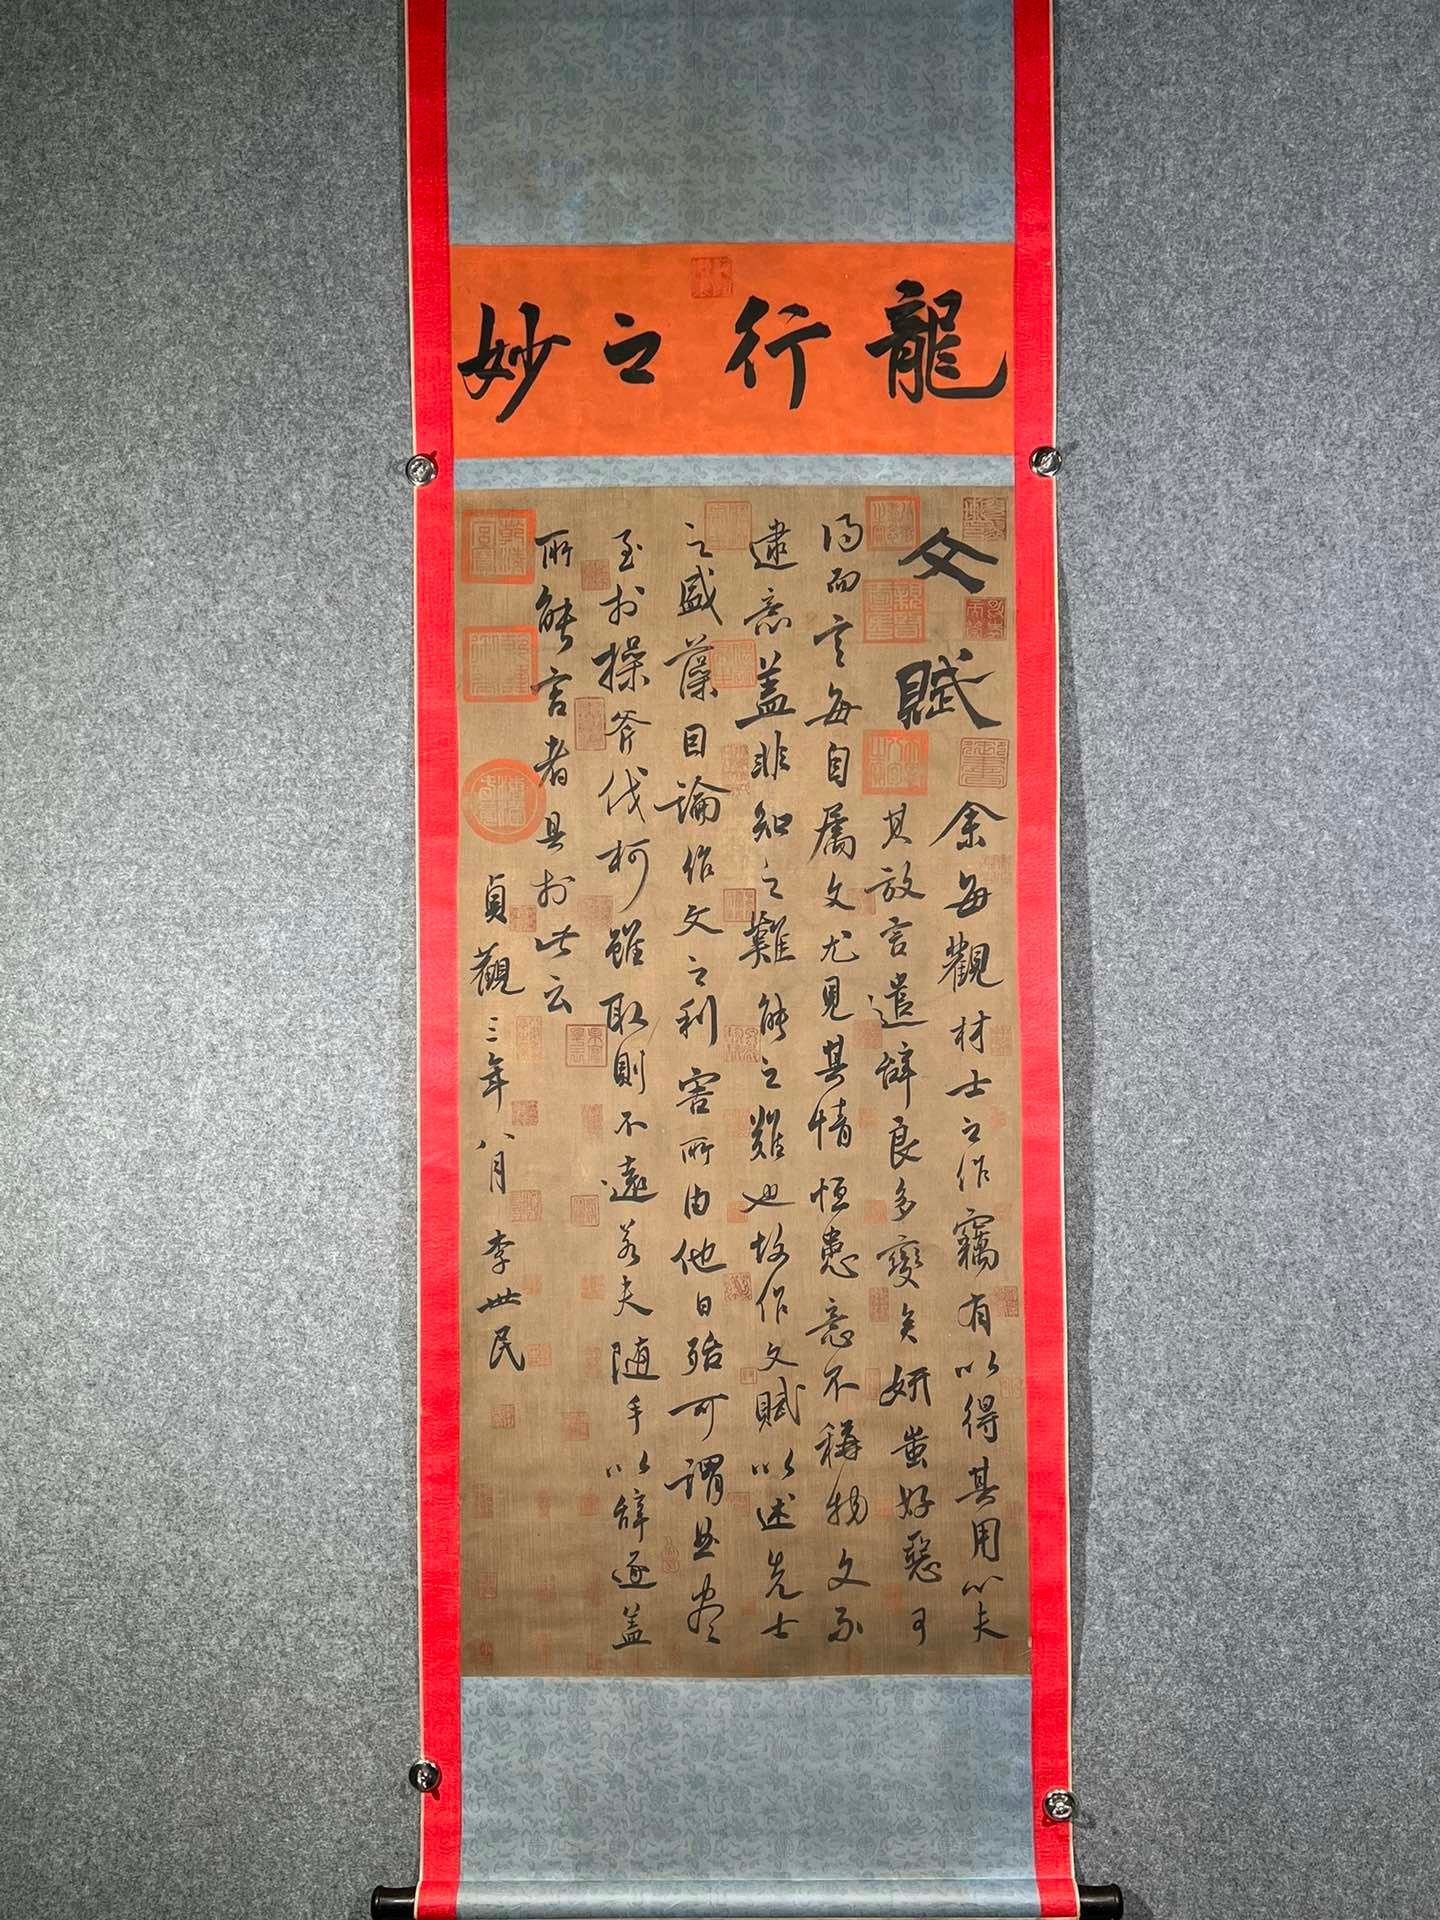 龍行之妙
文賦
余每觀材士之作竊有以得其用心夫
其放言遣辭良多變矣妍蚩好惡可
得而言每自属文尤見其情恒患意不稱物文不
逮意盖非知之難能之難也故作文賦以述先士
之盛藻因論作文之利害所由他日殆可謂曲盡
至於操斧伐柯雖取則不遠若夫隨手以辭逐盖
所能言者具於此云
貞觀三年八月 李世民